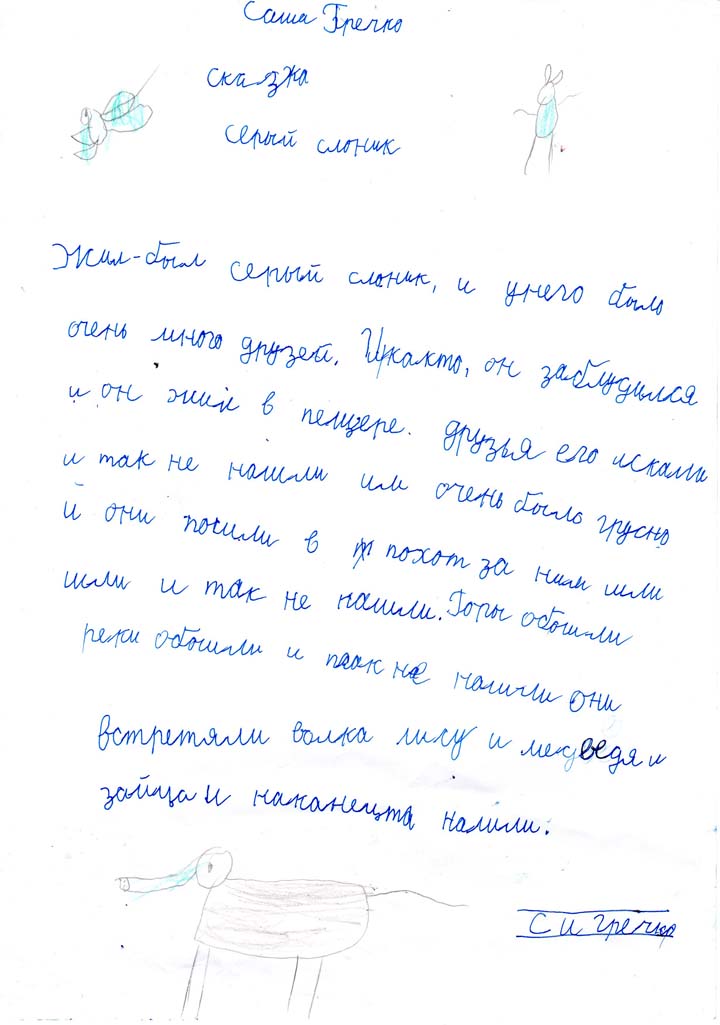 Саша Гречко
сказка
серый слоник
Жил-был серый слоник, и унего было
очень много друзей. Икакто, он заблудился
и он жил в пещере. друзья его искали
и так не нашли им очень было грусно
и они пошли в похот за ним шли
шли и так не нашли. Горы обошли
реки обошли и так не нашли они
встретяли волка лису и медведя и
зайца и наканецта нашли.
С И гречко